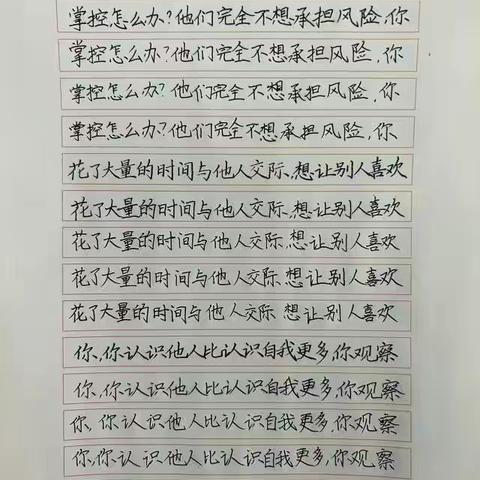 掌控怎么办?他们完全不想承担风险,你
掌控怎么办?他们完全不想承担风险,你
掌控怎么办?他们完全不想承担风险,你
掌控怎么办?他们完全不想承担风险,你
花了大量的时间与他人交际,想让别人喜欢
花了大量的时间与他人交际,想让别人喜欢
花了大量的时间与他人交际,想让别人喜欢
花了大量的时间与他人交际,想让别人喜欢
花了大量的时间与他人交际 想让别人喜欢
你,你认识他人比认识自我更多,你观察
你,你认识他人比认识自我更多,你观察
你,你认识他人比认识自我更多,你观察
你,你认识他人比认识自我更多,你观察